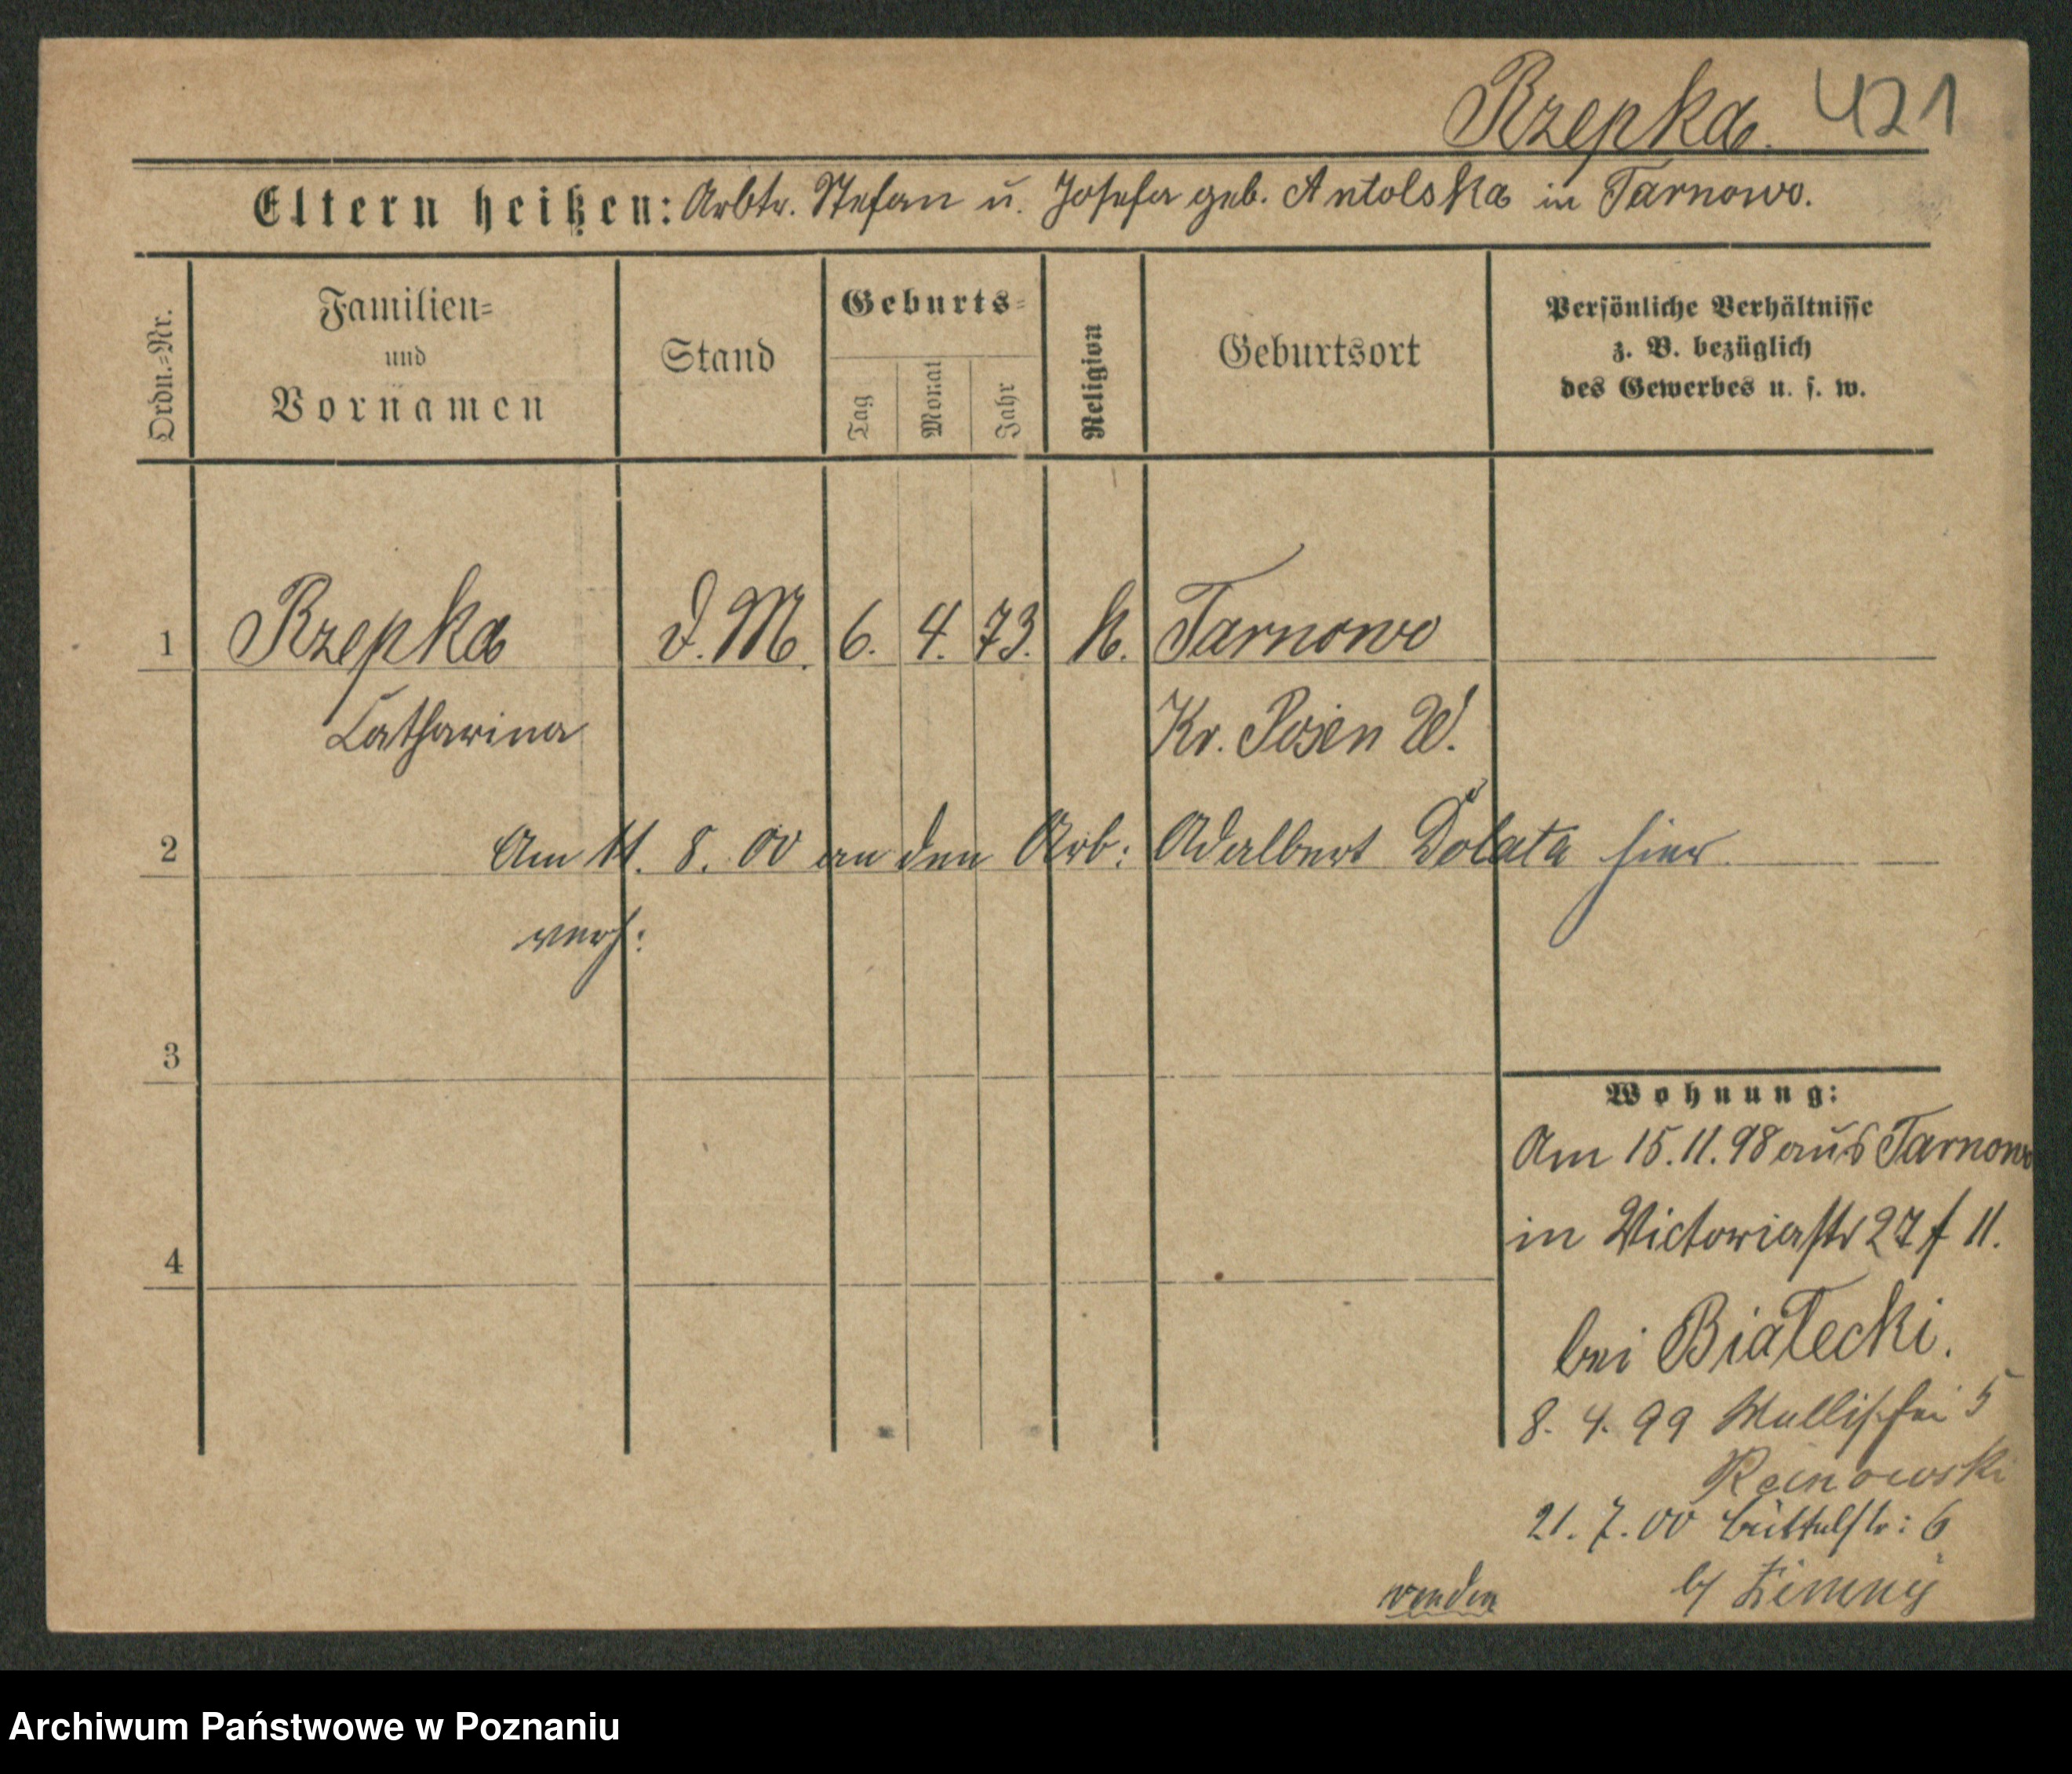 Rzepka. 421
Eltern heißen: Arbtr. Stefan u. Josefa geb. Antolska in Tarnowo.
Ordn.=Nr.
Familien=
und
Vornamen
Stand
Geburts=
Tag
Monat
Jahr
Religion
Geburtsort
Persönliche Verhältnisse
z. B. bezüglich
des Gewerbes u. s. w.
1 Rzepka D.M. 6. 4. 73. k. Tarnowo
Catharina Kr. Posen W.
2 Am 11. 8. 00 an den Arb: Adalbert Dolata hier
verh:
3
Wohnung:
Am 15.11.98 aus Tarnowo
in Victoriastr 27 f 11.
4
bei Białecki.
8. 4. 99 Wallischei 5
21. 7. 00 Büttelstr: 6
b/ Zimny
wenden
Archiwum Państwowe w Poznaniu